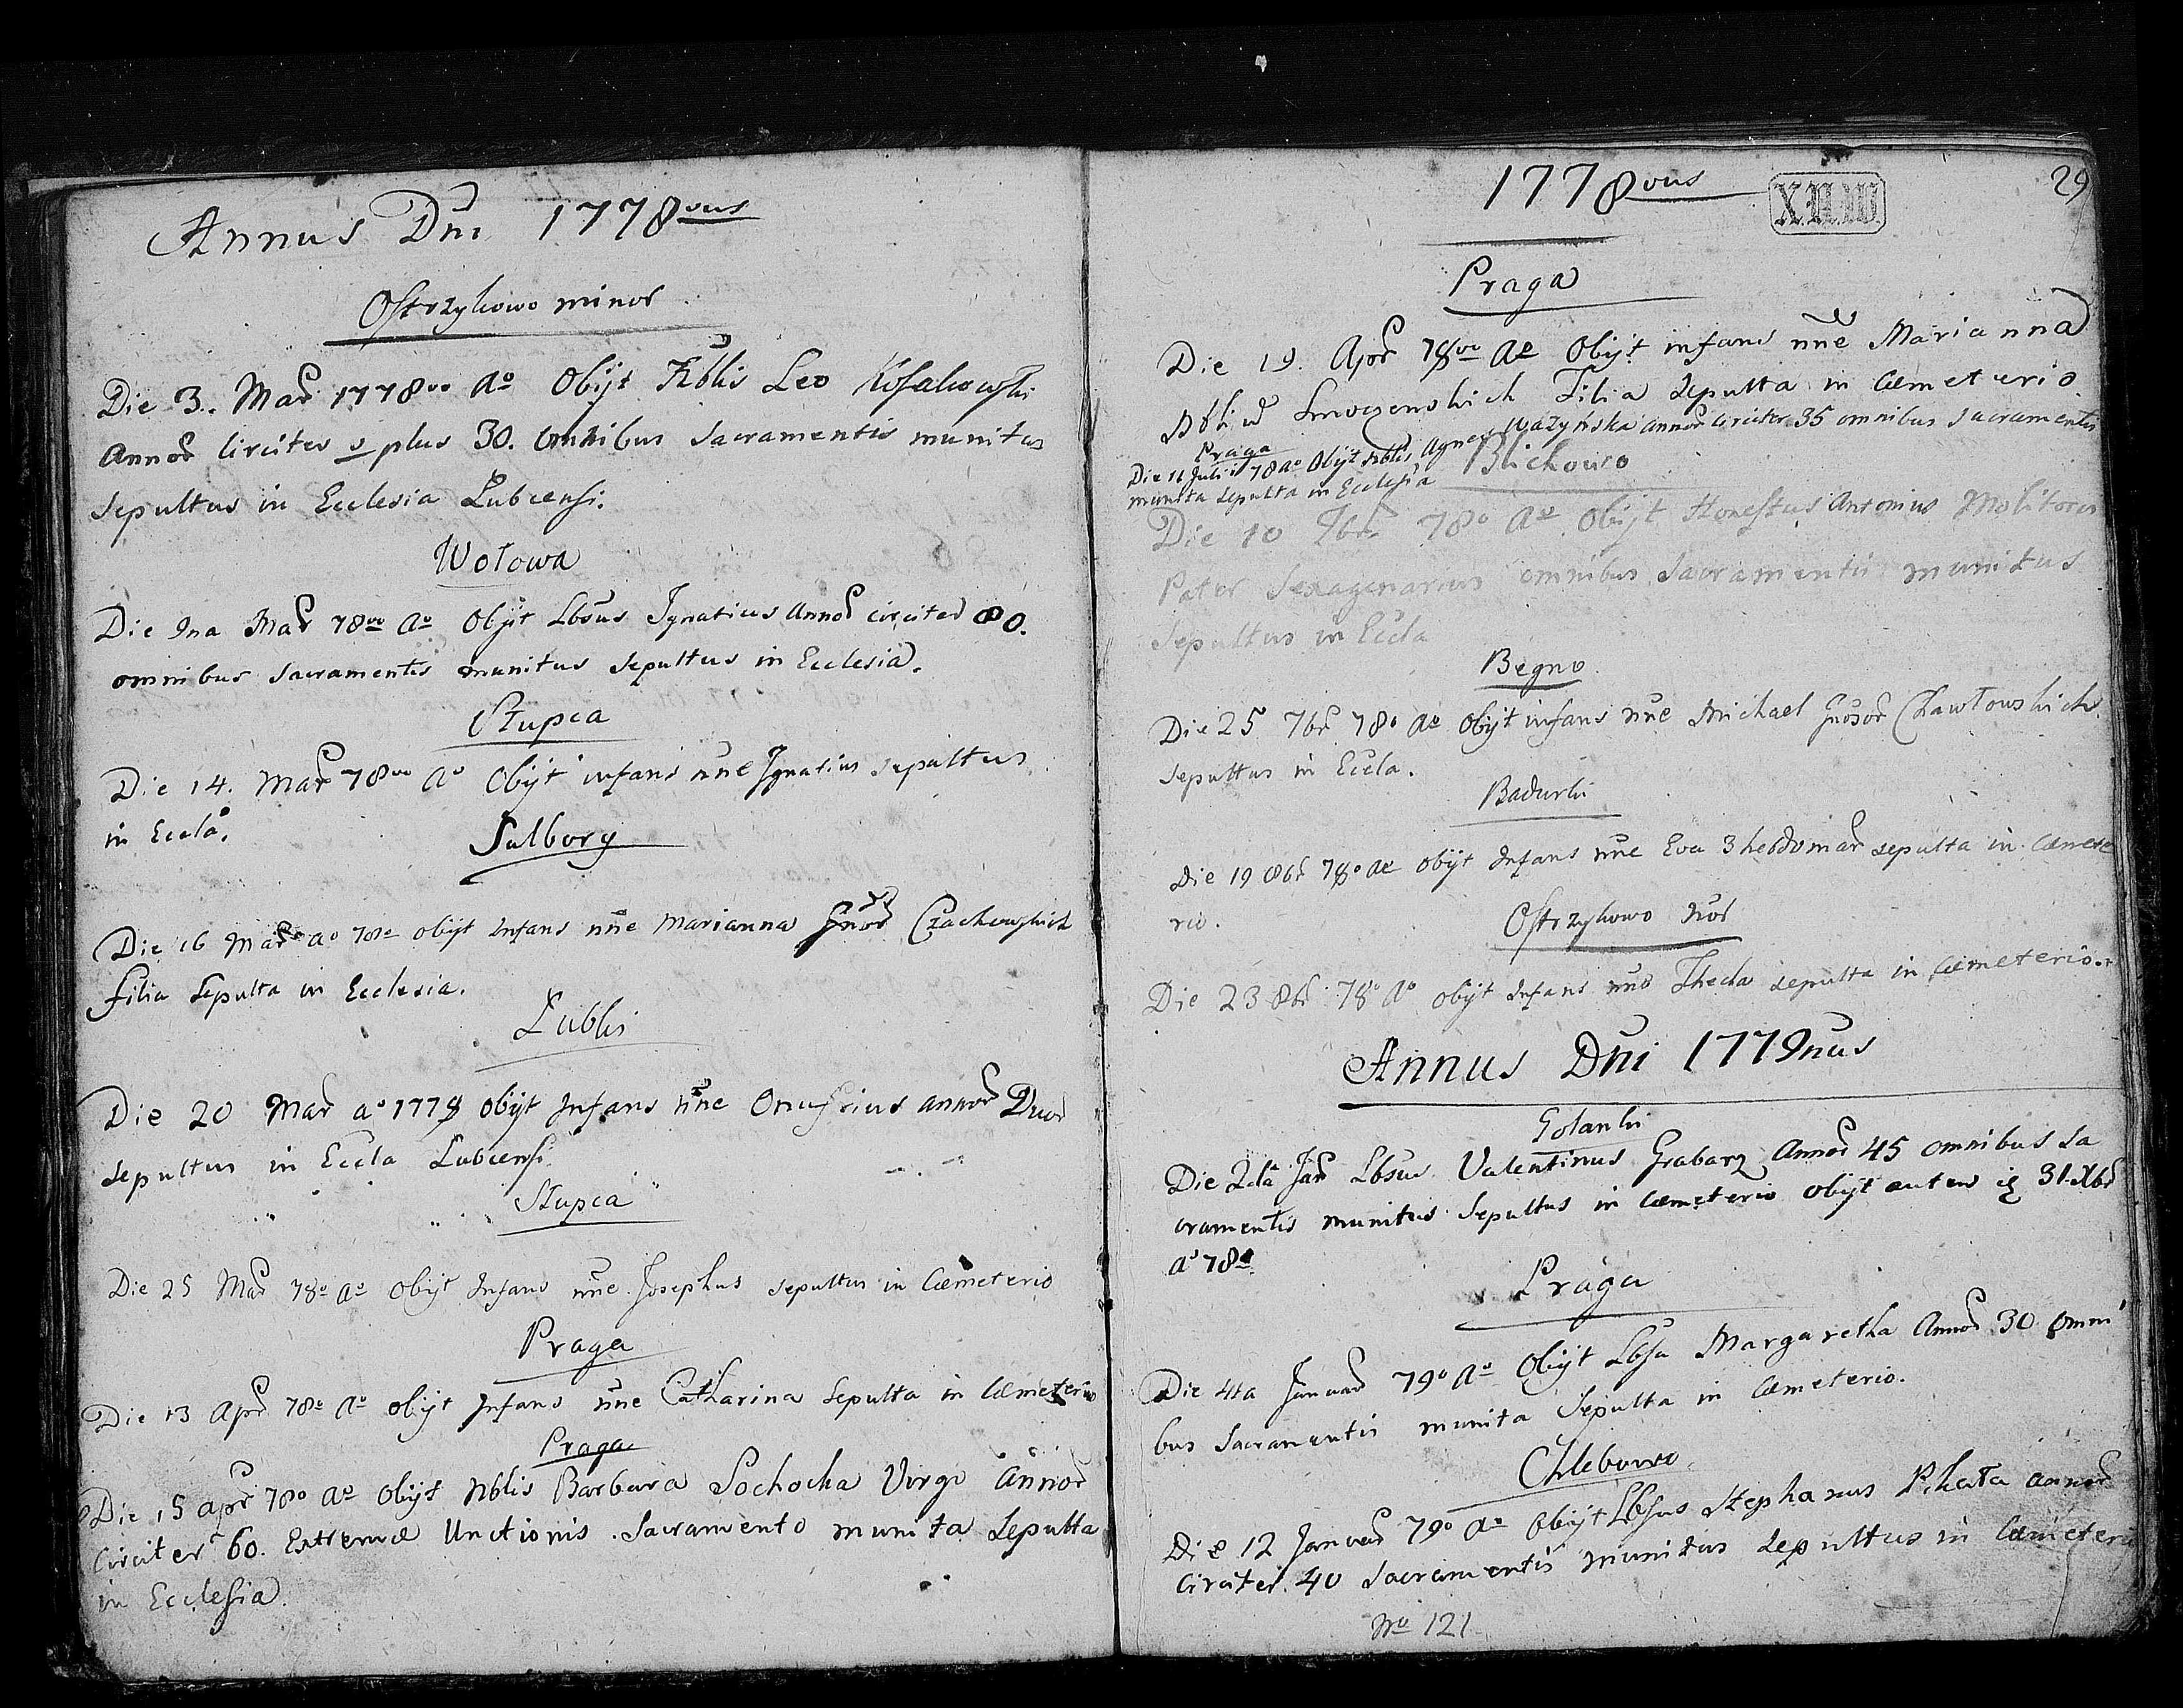 Annus Dni 1778vus
Ostrzykowo minor
Die 3. Mar 1778vo Ao Obijt Nblis Leo Kossakowski
Annor circiter plus 30. omnibus Sacramentis munitus
Sepultus in Ecclesia Lubcensi.
Wołowa
Die Mar 78vo Ao Obijt Lbsus Ignatius Annor circiter 80.
omnibus Sacramentis munitus Sepultus in Ecclesia.
Słupca
Die 14. Mar 78vo Ao Obijt infans nne Ignatius sepultus
in Eccla.
Sulbory
Die 16 Mar ao 78o obijt Infans nne Marianna Gnor Czachowskich
filia Sepulta in Ecclesia.
Lubki
Die 20 Mar ao 1778 obijt Infans nne Onufrius annor Duor
sepultus in Eccla Lubcensi
Słupca
Die 25 Mar 78o Ao Obijt Infans nne Josephus sepultus in Cæmeterio
Praga
Die 13 Apr 78o Ao obijt Infans nne Catharina Sepulta in Cæmeterio
Praga
Die 15 Apr 78o Ao obijt Nblis Barbara Sochocka Virgo Annor
Circiter 60. Extremæ Unctionis Sacramento munita Sepulta
in Ecclesia.
1778vus
X.N.W.
29
Praga
Die 19. Apr 78vo Ao Obijt infans nne Marianna
Nbliu Smoczenskich Filia Sepulta in Cæmeterio
Praga
Die 11 Julii 78 ao Obijt Nblis Agnes Ważyńska annor circiter 35 omnibus Sacramentis
munita Sepulta in Ecclesia
Blichowo
Die 10 7br 78o Ao Obijt Honestus Antonius Molitoris
Pater Sexagenarius omnibus Sacramentis munitus
Sepultus in Eccla
Begno
Die 25 7br 78o Ao Obijt infans nne Michael Gnosor Chawłowskich
Sepultus in Eccla.
Badurki
Die 19 8br 78o Ao obijt Infans nne Eva 3 hebdomar sepulta in Cæmete
rio.
Ostrzykowo
Die 23 8br 78o Ao obijt Infans nne Thecla sepulta in Cæmeterio.
Annus Dni 1779nus
Golanki
Die 2da Jan Lbsus Valentinus Grabarz Annor 45 omnibus Sa
cramentis munitus Sepultus in Cæmeterio obijt autem 31 Xbr
ao 78o
Praga
Die 4ta Januar 79o Ao Obijt Lbsa Margaretha Annor 30 omni
bus Sacramentis munita Sepulta in Cæmeterio.
Chlebowo
Die 12 Januar 79o Ao Obijt Lbsus Stephanus Pikata annor
circiter 40 Sacramentis munitus Sepultus in Cæmeterio
No 121